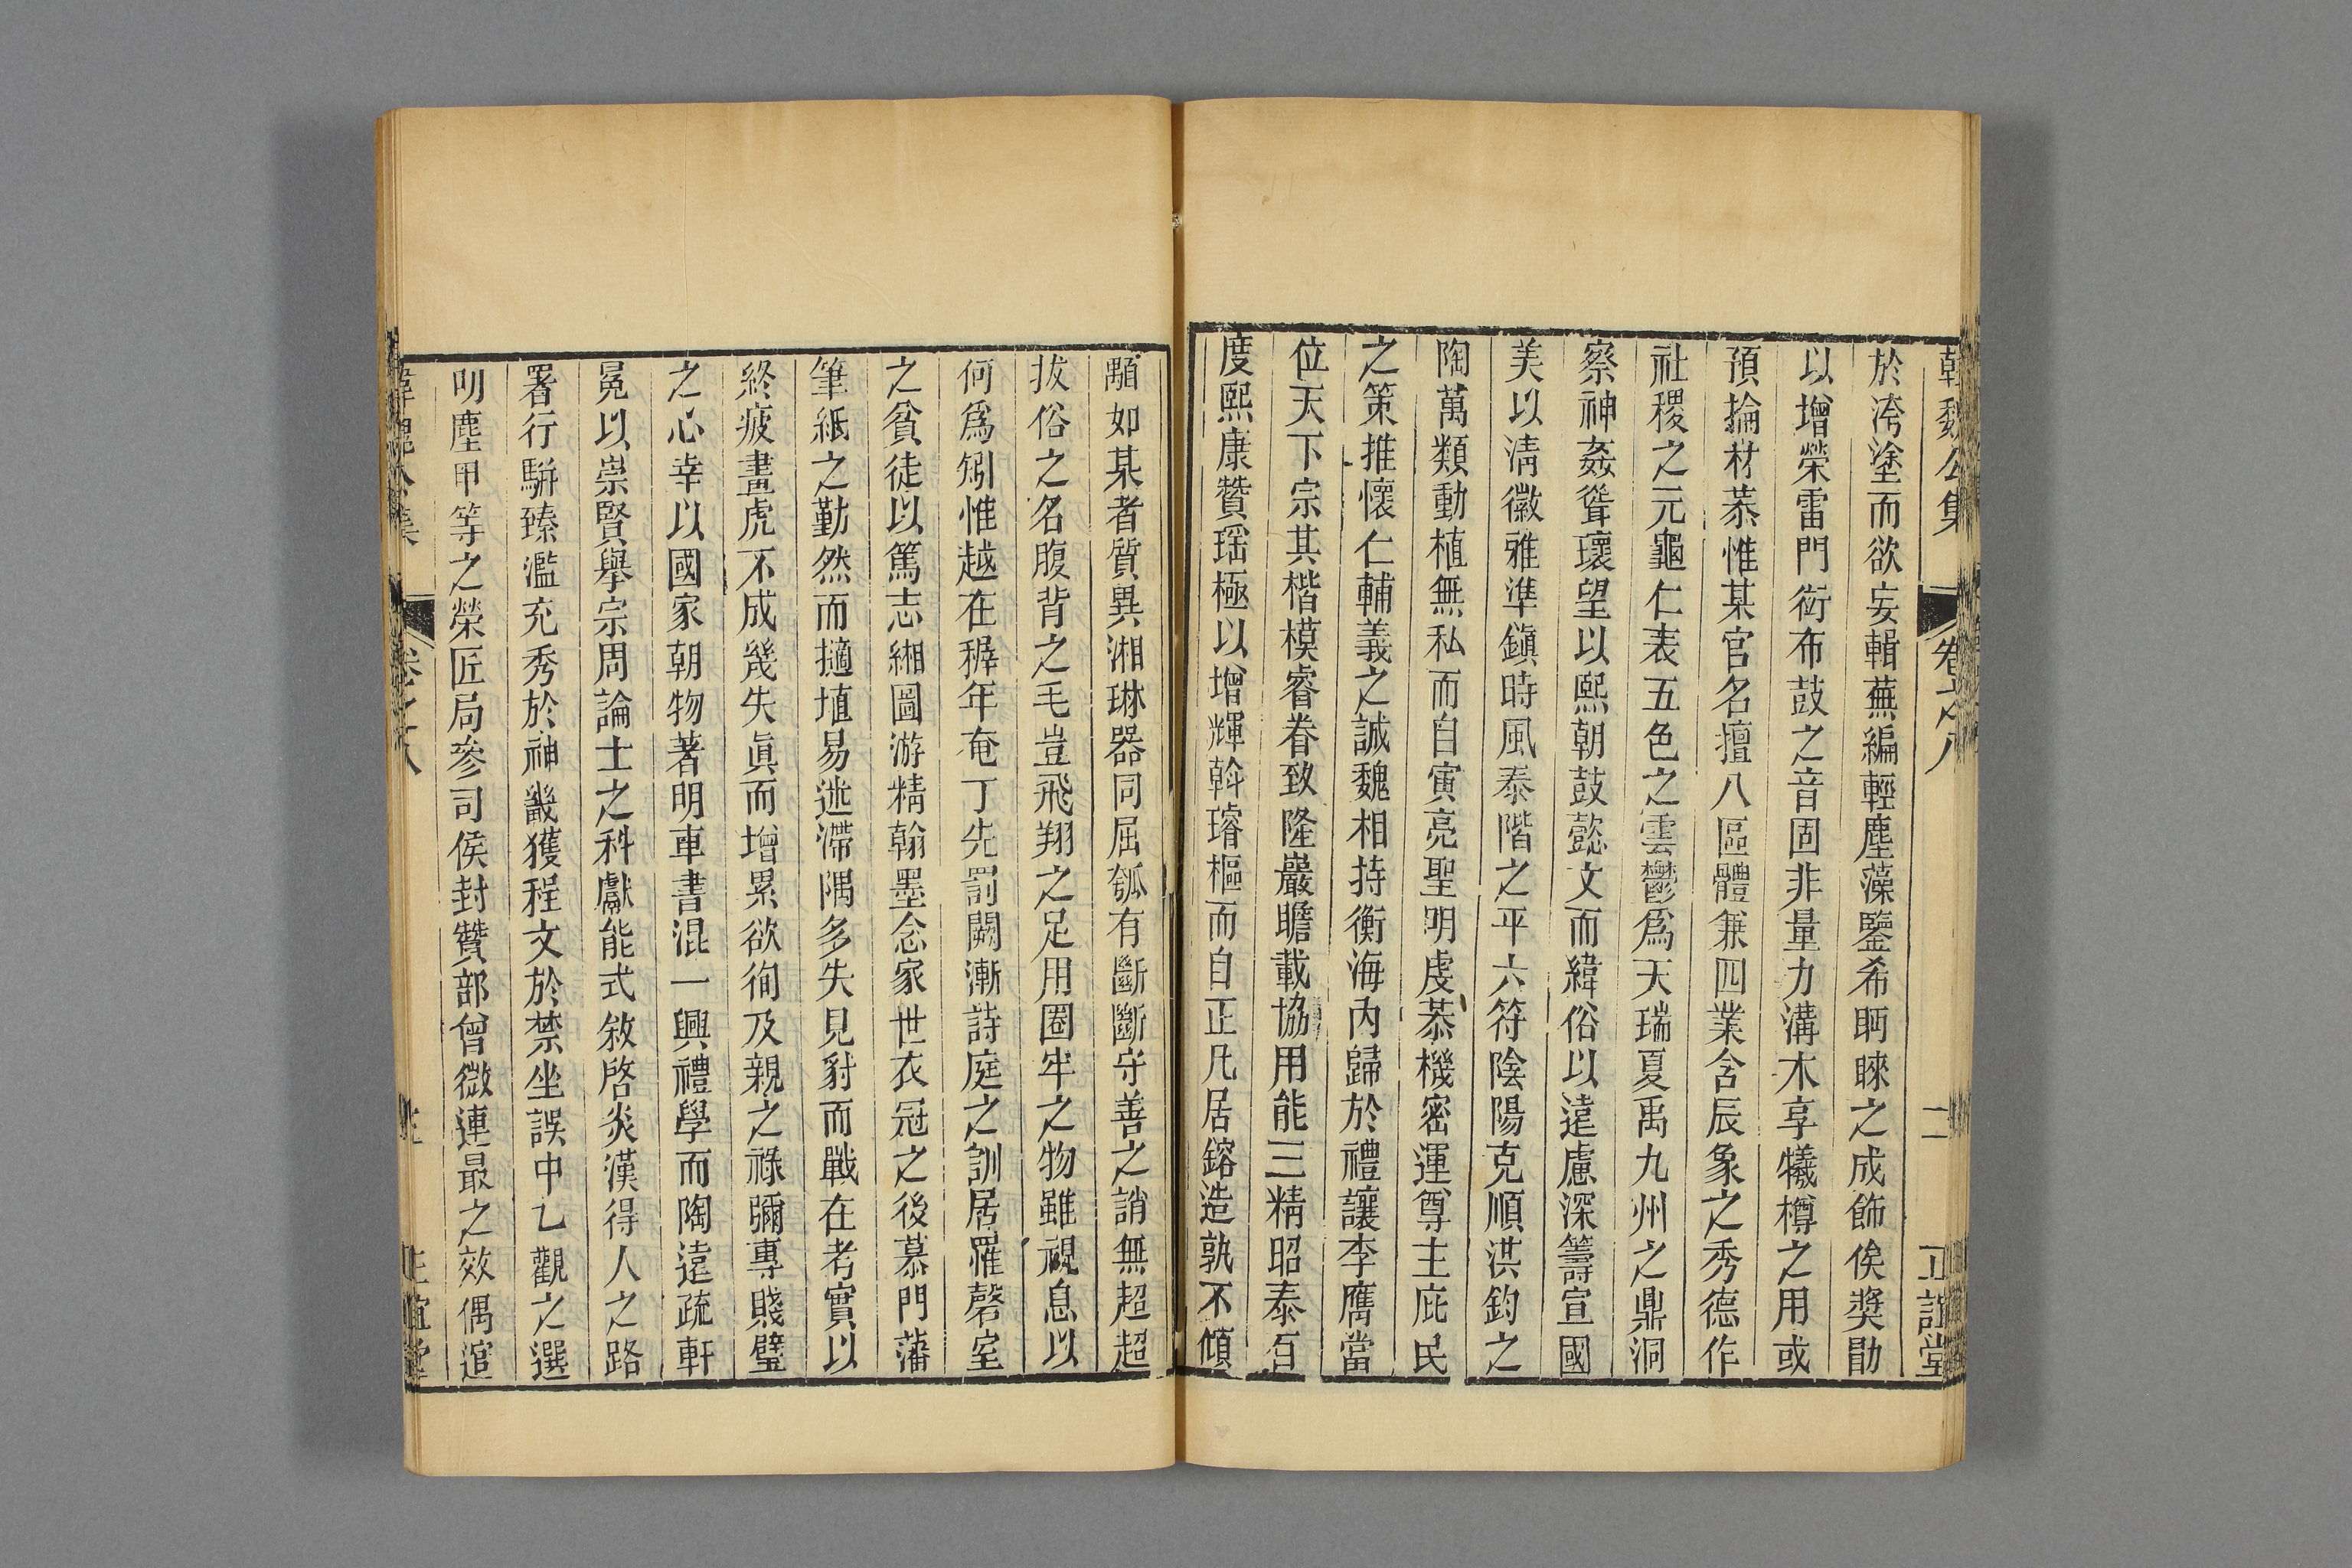 韓魏公集 卷之八 二 正誼堂
於洿塗而欲妄輯蕪編輕塵藻鑒希眄睞之成飾俟奬勖
以增榮雷門衒布鼓之音固非量力溝木享犧樽之用或
預掄材恭惟某官名擅八區體兼四業含辰象之秀德作
社稷之元龜仁表五色之雲鬱爲天瑞夏禹九州之鼎洞
察神姦聳瓌望以熙朝鼓懿文而緯俗以遠慮深籌宣國
美以淸徽雅準鎭時風泰階之平六符陰陽克順洪鈞之
陶萬類動植無私而自寅亮聖明虔恭機密運尊主庇民
之策推懷仁輔義之誠魏相持衡海內歸於禮讓李膺當
位天下宗其楷模睿眷致隆巖瞻載協用能三精昭泰百
度熙康贊瑶極以增輝斡璿樞而自正凡居鎔造孰不傾
顒如某者質異湘琳器同屈瓠有斷斷守善之誚無超超
拔俗之名腹背之毛豈飛翔之足用圈牢之物雖視息以
何爲矧惟越在穉年奄丁先罰闕漸詩庭之訓居罹磬室
之貧徒以篤志緗圖游精翰墨念家世衣冠之後慕門藩
筆紙之勤然而擿埴易迷滯隅多失見豺而戰在考實以
終疲畫虎不成幾失眞而增累欲徇及親之祿彌專賤璧
之心幸以國家朝物著明車書混一興禮學而陶遠疏軒
冕以崇賢舉宗周論士之科獻能式敘啓炎漢得人之路
署行騈臻濫充秀於神畿獲程文於禁坐誤中乙觀之選
叨塵甲等之榮匠局參司侯封贊部曾微連最之效偶逭
韓魏公集 卷之八 正誼堂